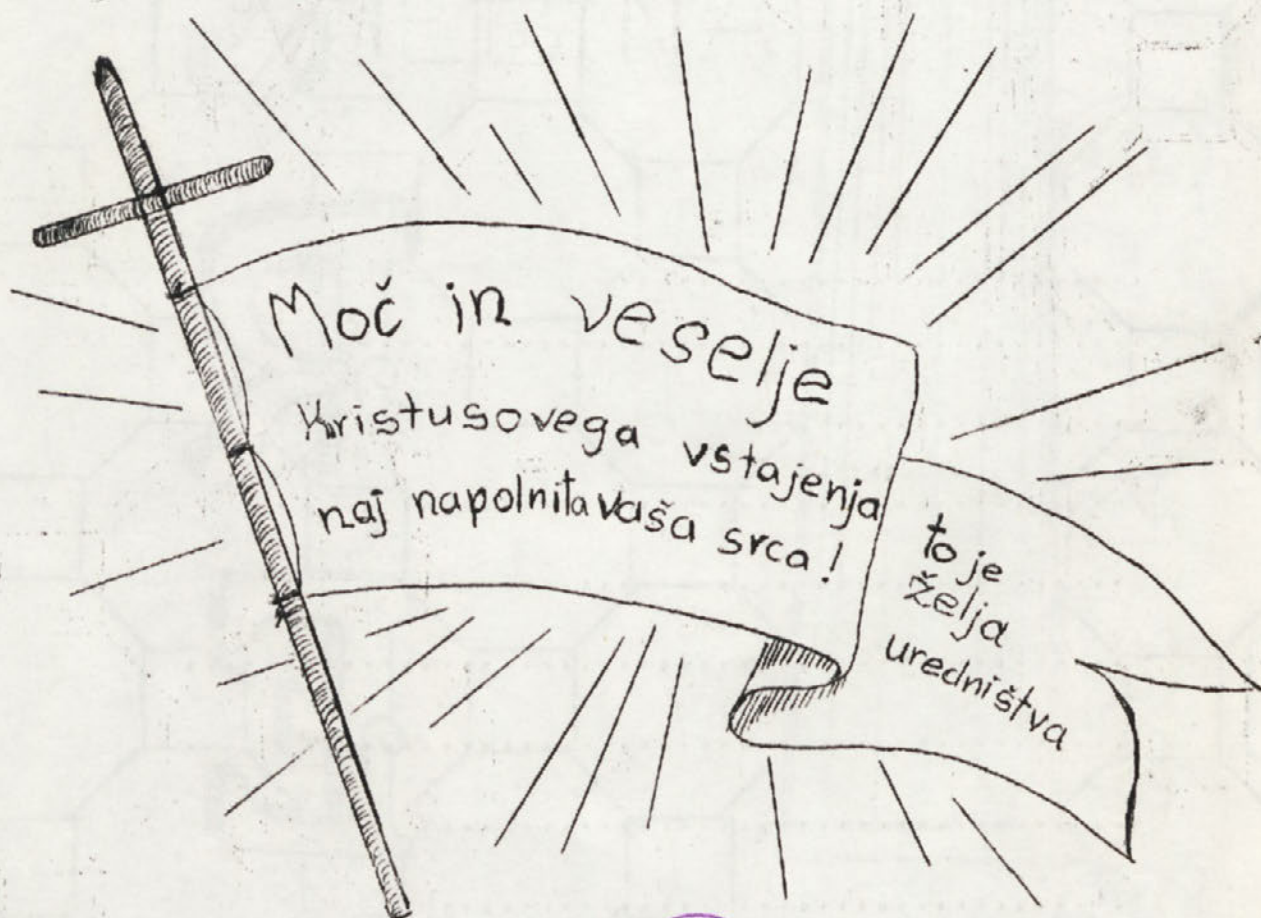 Moč in veselje
Kristusovega vstajenja
naj napolnita vaša srca!
to je
želja
uredništva